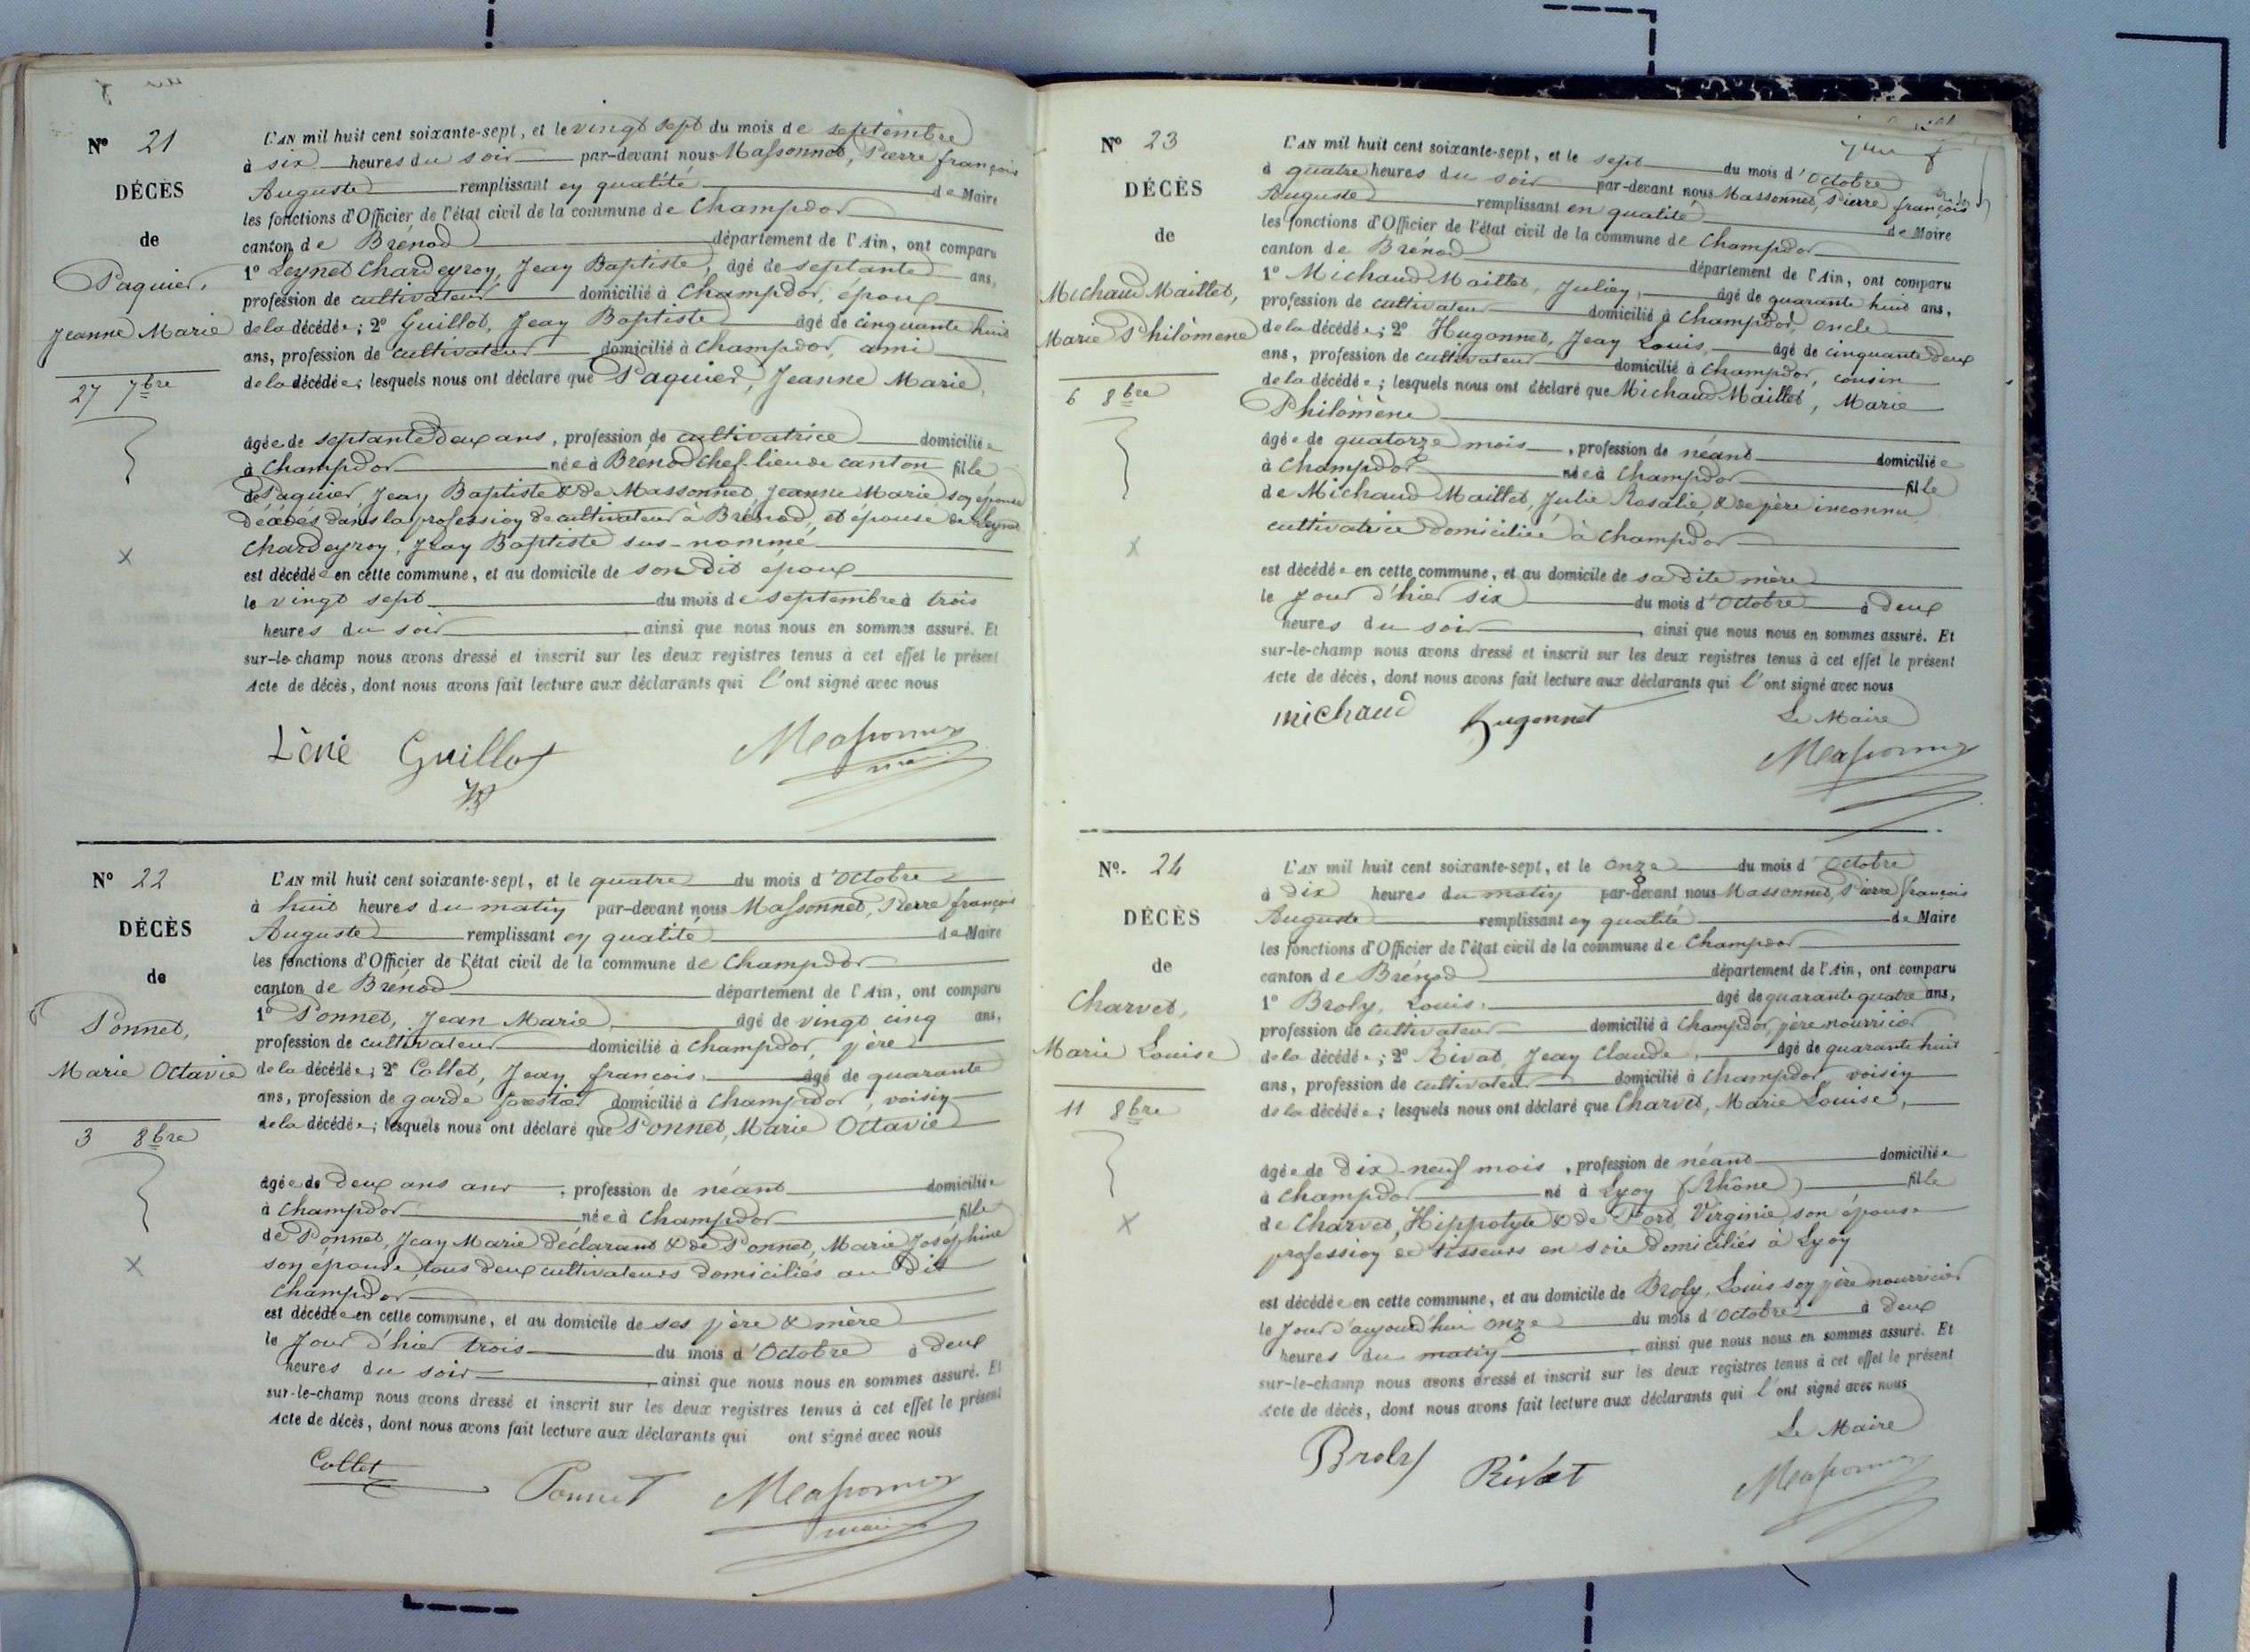 Nº 21
DÉCÈS
de
Paquier,
Jeanne Marie
27 7bre
L'AN mil huit cent soixante-sept, et le vingt sept du mois de septembre
à six heures du soir par-devant nous Massonnet, Pierre françois
Auguste remplissant en qualité de Maire
les fonctions d'Officier de l'état civil de la commune de Champdor
canton de Brénod département de l'Ain, ont comparu
1º Leynet Chardeyroy, Jean Baptiste, âgé de septante ans,
profession de cultivateur domicilié à Champdor, époux
de la décédée; 2º Guillot, Jean Baptiste âgé de cinquante huit
ans, profession de cultivateur domicilié à Champdor, ami
de la décédée; lesquels nous ont déclaré que Paquier, Jeanne Marie,
âgée de septante deux ans, profession de cultivatrice domiciliée
à Champdor née à Brénod chef-lieu de canton fille
de Paquier, Jean Baptiste & de Massonnet, Jeanne Marie, son épouse
décédés dans la profession de cultivateur à Brénod, et épouse de Leynet
Chardeyroy, Jean Baptiste sus-nommé
est décédée en cette commune, et au domicile de son dit époux
le vingt sept du mois de septembre à trois
heures du soir ainsi que nous nous en sommes assuré. Et
sur-le-champ nous avons dressé et inscrit sur les deux registres tenus à cet effet le présent
Acte de décès, dont nous avons fait lecture aux déclarants qui l'ont signé avec nous
Guillot Massonnet
maire
Nº 22
DÉCÈS
de
Ponnet,
Marie Octavie
3 8bre
L'AN mil huit cent soixante-sept, et le quatre du mois d'Octobre
à huit heures du matin par-devant nous Massonnet, Pierre françois
Auguste remplissant en qualité de Maire
les fonctions d'Officier de l'état civil de la commune de Champdor
canton de Brénod département de l'Ain, ont comparu
1º Ponnet, Jean Marie, âgé de vingt cinq ans,
profession de cultivateur domicilié à Champdor, père
de la décédée; 2º Collet, Jean françois, âgé de quarante
ans, profession de garde forestier domicilié à Champdor, voisin
de la décédée; lesquels nous ont déclaré que Ponnet, Marie Octavie
âgée de deux ans, profession de néant domiciliée
à Champdor née à Champdor fille
de Ponnet, Jean Marie déclarant & de Ponnet, Marie Joséphine
son épouse, tous deux cultivateurs domiciliés au dit
Champdor
est décédée en cette commune, et au domicile de ses père & mère
le Jour d'hier trois du mois d'Octobre à deux
heures du soir ainsi que nous nous en sommes assuré. Et
sur-le-champ nous avons dressé et inscrit sur les deux registres tenus à cet effet le présent
Acte de décès, dont nous avons fait lecture aux déclarants qui ont signé avec nous
Collet Ponnet Massonnet
maire
Nº 23
DÉCÈS
de
Michaud Maillet,
Marie Philomène
6 8bre
L'AN mil huit cent soixante-sept, et le sept du mois d'Octobre
à quatre heures du soir par-devant nous Massonnet, Pierre françois
Auguste remplissant en qualité de Maire
les fonctions d'Officier de l'état civil de la commune de Champdor
canton de Brénod département de l'Ain, ont comparu
1º Michaud Maillet, Julien, âgé de quarante huit ans,
profession de cultivateur domicilié à Champdor, oncle
de la décédée; 2º Hugonnet, Jean Louis, âgé de cinquante deux
ans, profession de cultivateur domicilié à Champdor, cousin
de la décédée; lesquels nous ont déclaré que Michaud Maillet, Marie
Philomène
âgée de quatorze mois, profession de néant domiciliée
à Champdor née à Champdor fille
de Michaud Maillet, Julie Rosalie, & de père inconnu
cultivatrice domiciliée à Champdor
est décédée en cette commune, et au domicile de sa dite mère
le Jour d'hier six du mois d'Octobre à deux
heures du soir, ainsi que nous nous en sommes assuré. Et
sur-le-champ nous avons dressé et inscrit sur les deux registres tenus à cet effet le présent
Acte de décès, dont nous avons fait lecture aux déclarants qui l'ont signé avec nous
michaud Hugonnet Le Maire
Massonnet
Nº. 24
DÉCÈS
de
Charvet,
Marie Louise
11 8bre
L'AN mil huit cent soixante-sept, et le onze du mois d'Octobre
à dix heures du matin par-devant nous Massonnet, Pierre françois
Auguste remplissant en qualité de Maire
les fonctions d'Officier de l'état civil de la commune de Champdor
canton de Brénod département de l'Ain, ont comparu
1º Broly, Louis, âgé de quarante quatre ans,
profession de cultivateur domicilié à Champdor, père nourricier
de la décédée; 2º Rivat, Jean Claude, âgé de quarante huit
ans, profession de cultivateur domicilié à Champdor voisin
de la décédée; lesquels nous ont déclaré que Charvet, Marie Louise,
âgée de dix-neuf mois, profession de néant domiciliée
à Champdor né à Lyon (Rhône) fille
de Charvet, Hippolyte & de Virginie, son épouse
profession de tisseurs en soie domiciliés à Lyon
est décédée en cette commune, et au domicile de Broly, Louis son père nourricier
le Jour d'aujourd'hui onze du mois d'Octobre à deux
heures du matin, ainsi que nous nous en sommes assuré. Et
sur-le-champ nous avons dressé et inscrit sur les deux registres tenus à cet effet le présent
Acte de décès, dont nous avons fait lecture aux déclarants qui l'ont signé avec nous
Le Maire
Broly Rivat Massonnet